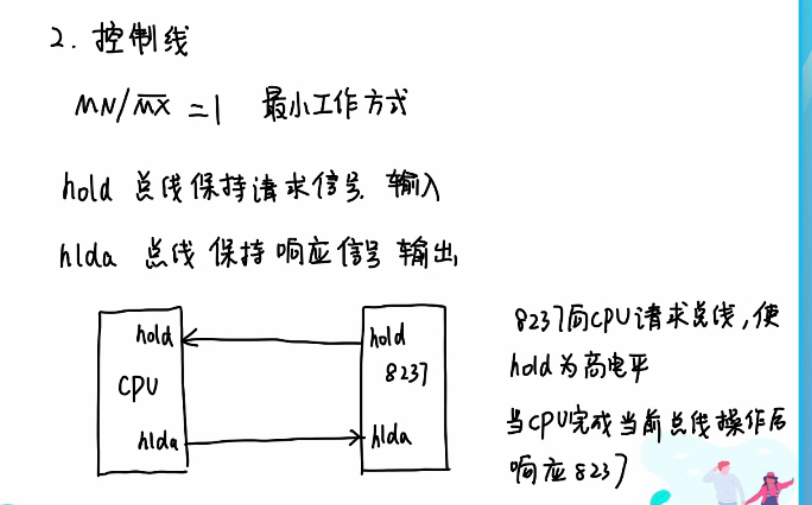 2. 控制线
MN/M̅X̅ =1 最小工作方式
hold 总线保持请求信号. 输入
hlda 总线保持响应信号 输出
hold
CPU
hlda
hold
8237
hlda
8237向CPU请求总线,使
hold为高电平
当CPU完成当前总线操作后
响应8237